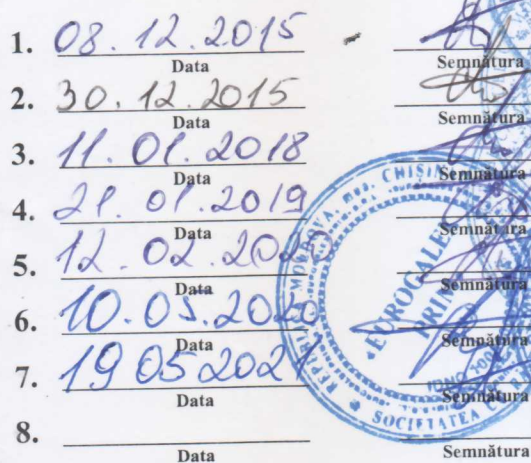 1. 08.12.2015
Data Semnătura
2. 30.12.2015
Data Semnătura
3. 11.01.2018
Data Semnătura
4. 21.01.2019
Data Semnătura
5. 12.02.2020
Data Semnătura
6. 10.03.2020
Data Semnătura
7. 19 05 2021
Data Semnătura
8.
Data Semnătura
MOLDOVA, mun. CHIȘIN
"EUROGALE
PRINT"
SOCIETATEA C